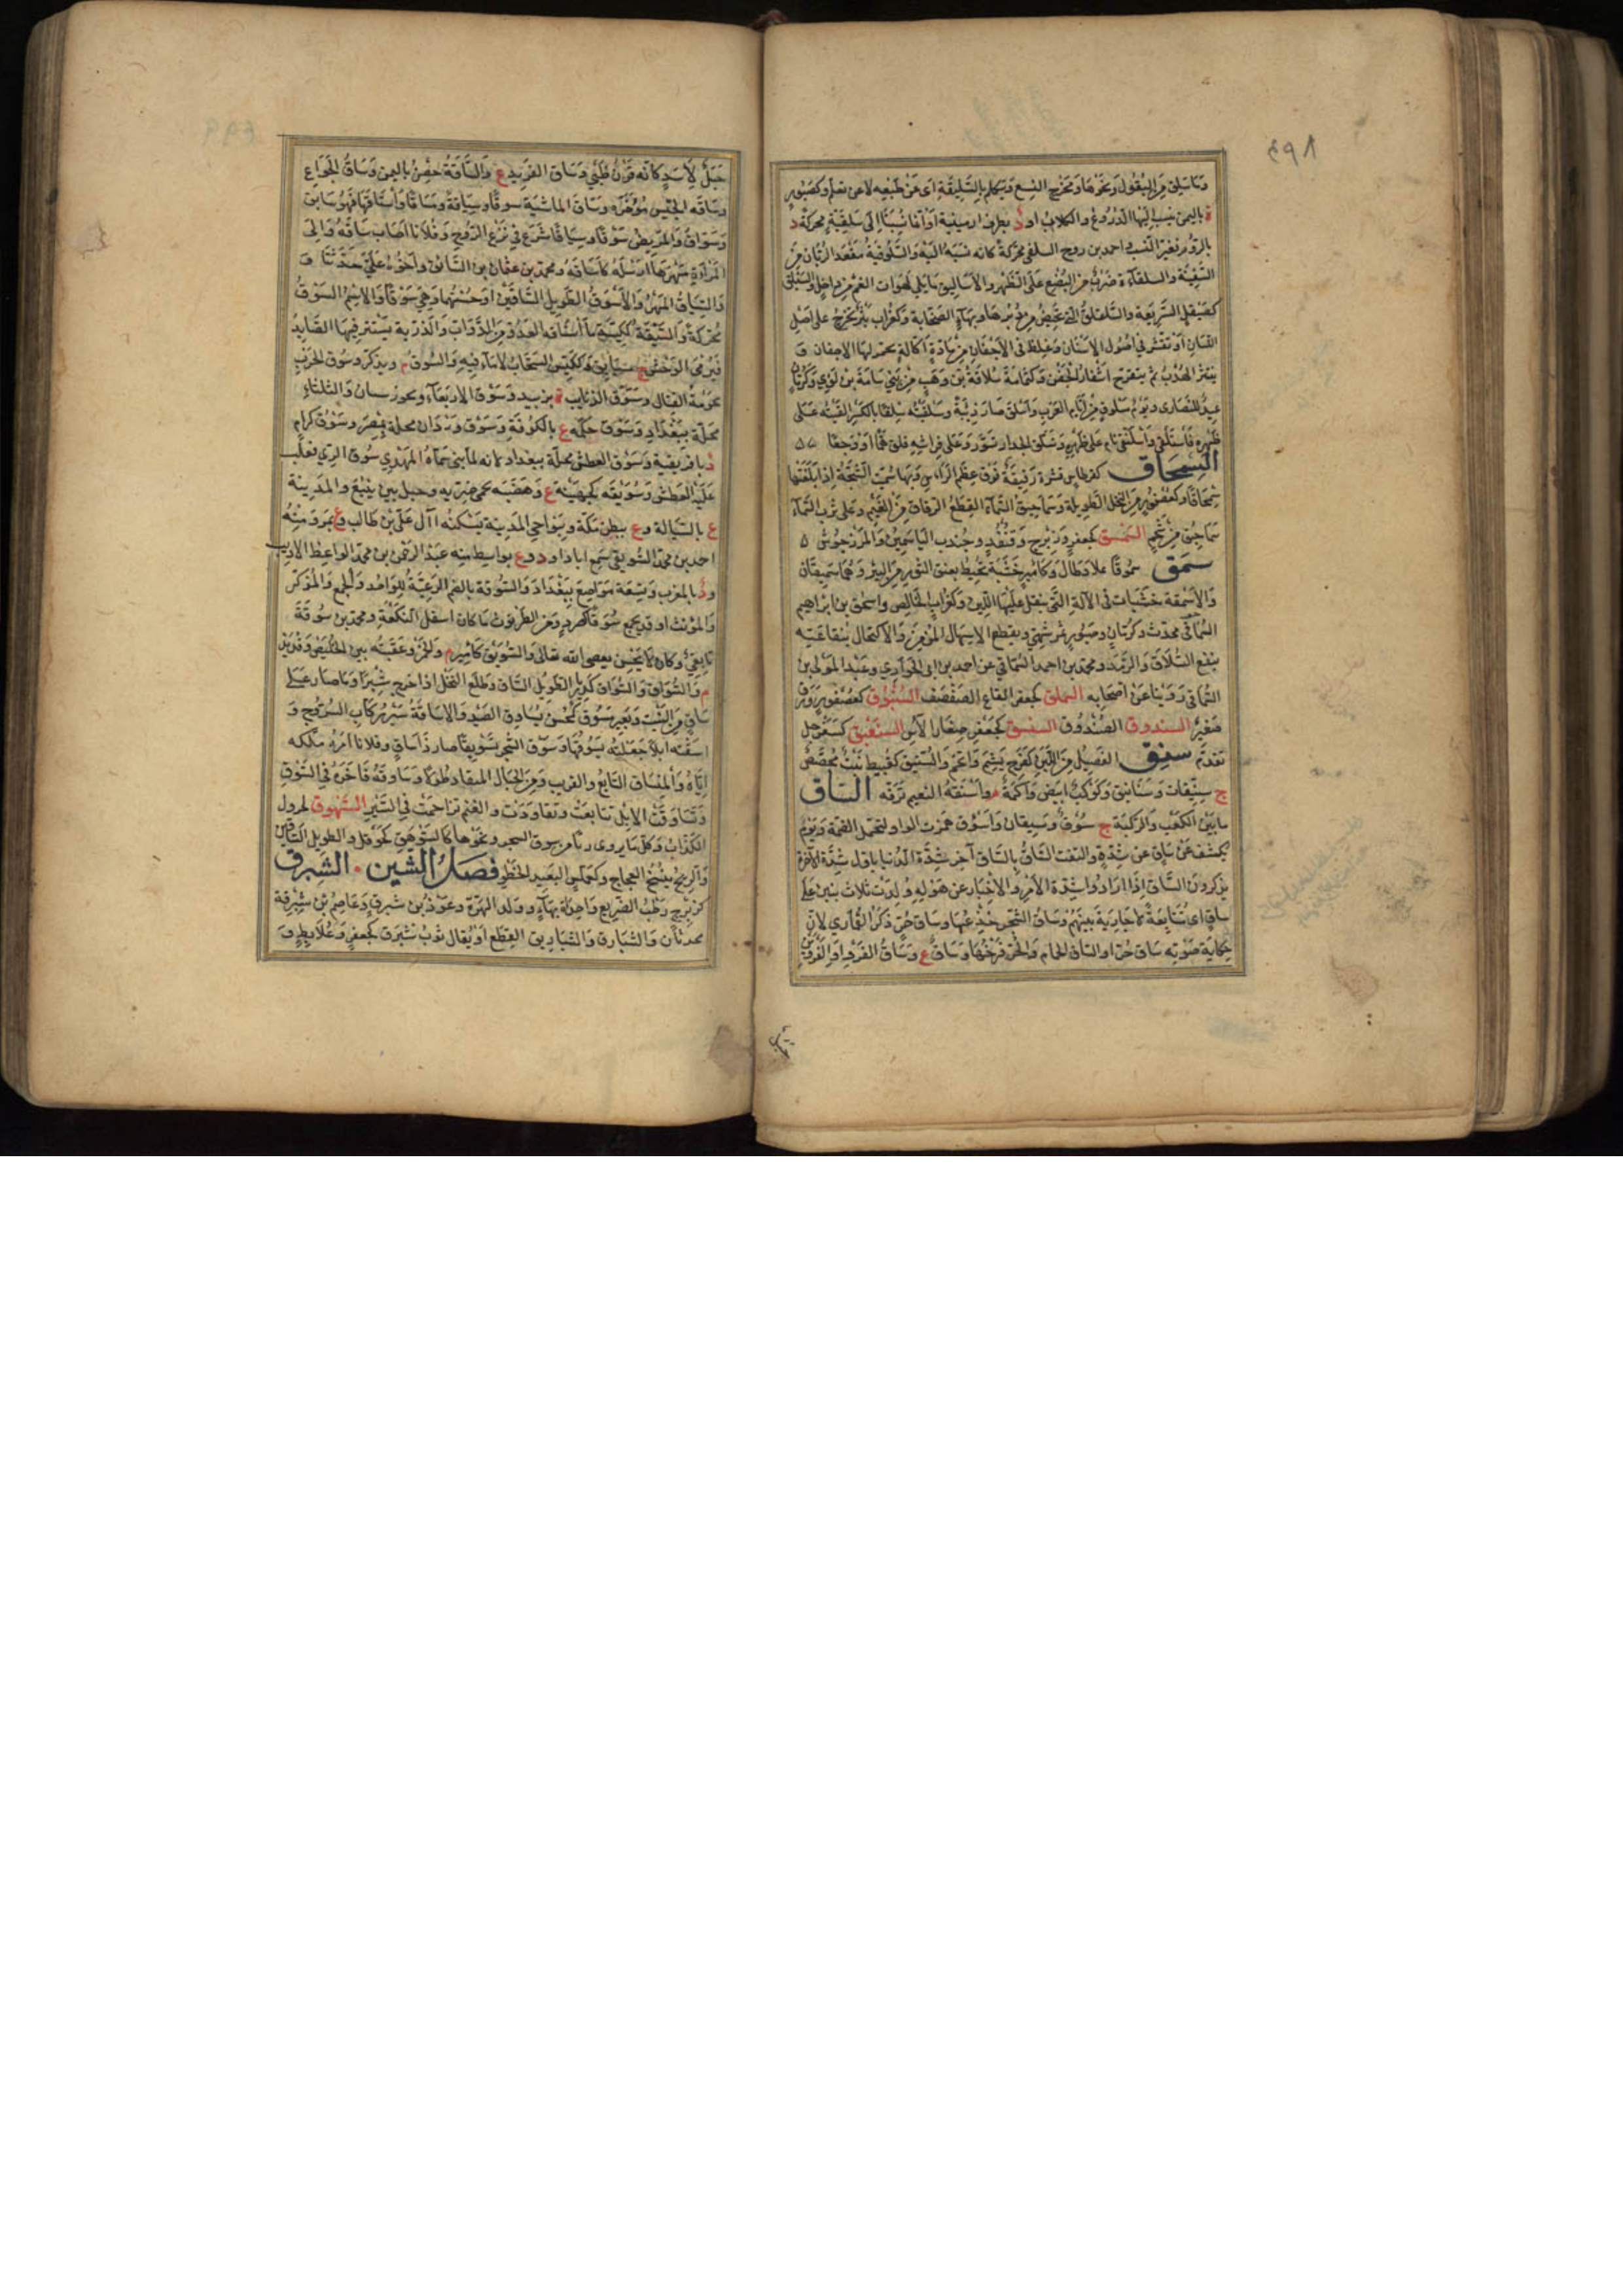 ٤٩٨
وما سلق من البقول ونحوها ومخرج النسع ويتكلم بالسليقية اي عن طبعه لا عن تعلم وكصبور
ة باليمن ينسب اليها الدروع والكلاب او د بطرف ارمينية او انما نسبتا الى سلقية محركة د
بالروم احمد بن روح السلقي محركة كانه نسبة اليه والسلوقية مقعد الربان من
السفينة والسلقاة ضرب من البضع على الظهر والاساليق ما يلي لهوات الفم من داخل والسيلق
كصيقل السريعة والسلقلق التي تحيض من دبرها وبهاء الصخابة وكغراب بثر يخرج على اصل
اللسان او تقشر في اصول الاسنان وغلظ في الاجفان من مادة اكالة تحمر لها الاجفان و
ينتثر الهدب ثم يتقرح اشفار الجفن وكثمامة سلاقة بن وهب من بني سامة بن لؤي وكرمان
عيد للنصارى ويوم سلوق من ايام العرب واسلق صار ذئبة وسلقيته سلقا بالكسر القيته على
ظهره فاستلقى واسلنقى نام على ظهره وتسلق الجدار تسور وعلى فراشه قلق هما او وجعا
السمحاق كقرطاس قشرة رقيقة فوق عظم الراس وبها سميت الشجة اذا بلغتها
سمحاقا وكعصفور من النخل الطويلة وسماحيق السماء القطع الرقاق من الغيم وعلى ثرب الشاة
سماحيق من شحم السمسق كجعفر وزبرج وقنفذ وجندب الياسمين والمرزجوش
سمق سموقا علا وطال وكامير خشبة تحيط بعنق الثور من النير وهما سميقان
والاسمقة خشبات في الآلة التي ينقل عليها اللبن وكغراب الخالص واسحق بن ابراهيم
السماقي محدث وكرمان وصبور ثمر يشهي ويقطع الاسهال المزمن والاكتحال بنقاعته
ينفع السلاق والرمد ومحمد بن احمد السماقي عن احمد بن ابي الحواري وعبد المولى بن
السماقي روينا عن اصحابه السملق كجعفر القاع الصفصف السنبوق كعصفور زورق
صغير السندوق الصندوق السنسق كجعفر صغار الآس السنعبق كسفرجل
تقدم سنق الفصيل من اللبن كفرح بشم واتخم والسنيق كقبيط بيت مجصص
ج سنيقات وسنانيق وكوكب ابيض واكمة م واسنقه النعيم ترفه الساق
ما بين الكعب والركبة ج سوق وسيقان واسوق همزت الواو لتحمل الضمة ويوم
يكشف عن ساق عن شدة والتفت الساق بالساق آخر شدة الدنيا باول شدة الآخرة
يذكرون الساق اذا ارادوا شدة الامر والاخبار عن هوله وولدت ثلاث بنين على
ساق اي متتابعة لا جارية بينهم وساق الشجر جذعها وساق حر ذكر القماري لان
حكاية صوته ساق حر او الساق الحمام والحر فرخها وساق ع وساق الفرو او الفروين
جبل
جبل لاسد كانه قرن ظبي وساق الفريد ع والساقة حصن باليمن وساق الجواء ع
وساقة الجيش مؤخره وساق الماشية سوقا وسياقة ومساقا واستاقها فهو سائق
وسواق والمريض سوقا وسياقا شرع في نزع الروح وفلانا اصاب ساقه والى
المرأة مهرها ارسله كاساقه ومحمد بن عثمان بن السائق واخوه علي حدثنا و
والسياق المهر والاسوق الطويل الساقين او حسنهما وهي سوقاء والاسم السوق
محركة والسيقة ككيسة ما استاقه العدو من الدواب والدريئة يستتر فيها الصائد
فيرمي الوحش ج سيائق وككيس السحاب لا ماء فيه والسوق م ويذكر وسوق الحرب
حومة القتال وسوق الذنائب ة بزبيد وسوق الاربعاء د بخوزستان والثلثاء
محلة ببغداد وسوق حكمة ع بالكوفة وسوق وردان محلة بمصر وسوق كرام
د بافريقية وسوق العطش محلة ببغداد لانه لما بنى سماه المهدي سوق الري فغلب
عليه العطش وسويقة كجهينة ع وهضبة بحمى ضرية وجبل بين ينبع والمدينة
ع بالسيالة وع ببطن مكة وبنواحي المدينة يسكنه آل علي بن طالب وع بمرو منه
احمد بن محمد السويقي سمع ابا داود وع بواسط منه عبد الرحمن بن محمد الواعظ الاديب
ود بالمغرب وتسعة مواضع ببغداد والسوقة بالضم الرعية للواحد والجمع والمذكر
والمؤنث او قد يجمع سوقا كصرد ومن الطرثوث ما كان اسفل النكعة ومحمد بن سوقة
تابعي وكان لا يحسن يعصي الله تعالى والسويق كامير م والخمر وعقبته بين الخليص وقديد
م والسواق والسوق كرمان الطويل الساق وطلع النخل اذا خرج شبرا وما صار على
ساق من النبت وبعير مسوق كمحسن يساوق الصيد والاساقة سير ركاب السروج و
اسقته ابلا جعلته يسوقها وسوق الشجر تسويقا صار ذا ساق وفلانا امره ملكه
اياه والمنساق التابع والقريب ومن الجبال المنقاد طولا وساوقه فاخره في السوق
وتساوقت الابل تتابعت وتقاودت والغنم تزاحمت في السير السهوق كجرول
الكذاب وكل ما يروى ريا من سوق الشجر ونحوها كالسوهق كحوقل والطويل الساقين
والريح ينسج العجاج وكعملس البعيد الخطو فصل الشين . الشبرق
كزبرج رطب الضريع واحدته بهاء وولد الهرة وعوذ بن شبرق وعاصم بن شبرقة
محدثان والشبارق والشباريق القطع او يقال ثوب شبرق كجعفر وعلابط و